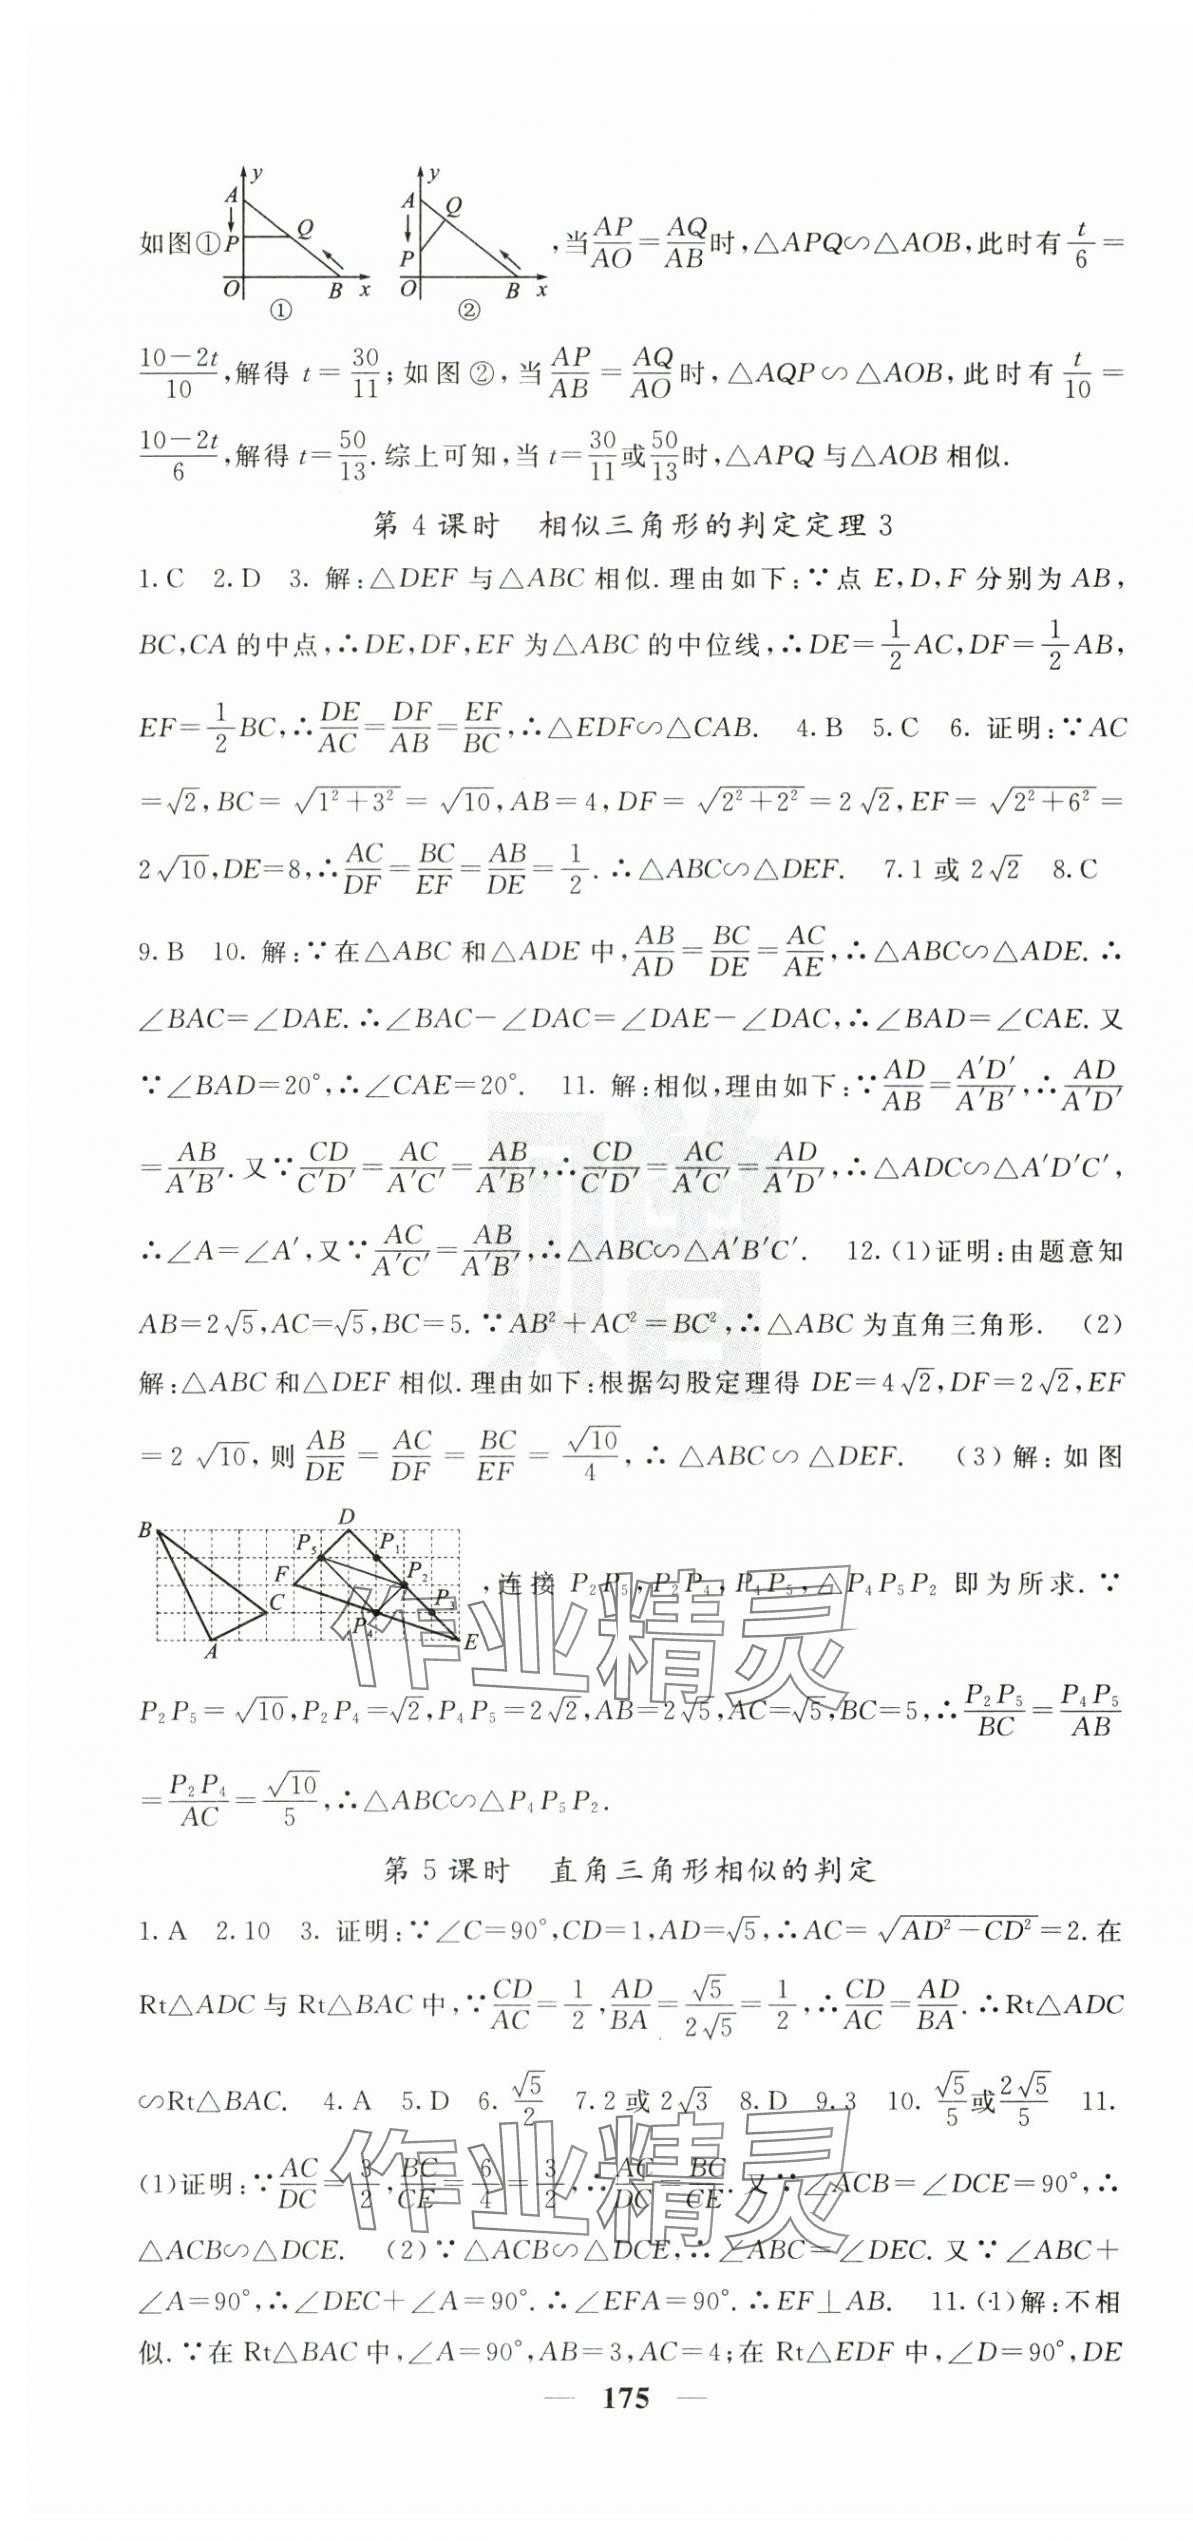 如图① y A P Q O B x ① y A Q P O B x ② ,当AP/AO=AQ/AB时,△APQ∽△AOB,此时有t/6=
(10-2t)/10,解得 t=30/11;如图②,当AP/AB=AQ/AO时,△AQP∽△AOB,此时有t/10=
(10-2t)/6,解得t=50/13.综上可知,当t=30/11或50/13时,△APQ与△AOB相似.
第4课时 相似三角形的判定定理3
1.C 2.D 3. 解:△DEF与△ABC相似.理由如下:∵点E,D,F分别为AB,
BC,CA的中点,∴DE,DF,EF为△ABC的中位线,∴DE=1/2AC,DF=1/2AB,
EF=1/2BC,∴DE/AC=DF/AB=EF/BC,∴△EDF∽△CAB. 4.B 5.C 6. 证明:∵AC
=√2,BC=√(1²+3²)=√10,AB=4,DF=√(2²+2²)=2√2,EF=√(2²+6²)=
2√10,DE=8,∴AC/DF=BC/EF=AB/DE=1/2.∴△ABC∽△DEF. 7.1或2√2 8.C
9.B 10. 解:∵在△ABC和△ADE中,AB/AD=BC/DE=AC/AE,∴△ABC∽△ADE.∴
∠BAC=∠DAE.∴∠BAC-∠DAC=∠DAE-∠DAC,∴∠BAD=∠CAE.又
∵∠BAD=20°,∴∠CAE=20°. 11. 解:相似,理由如下:∵AD/AB=A′D′/A′B′,∴AD/A′D′
=AB/A′B′.又∵CD/C′D′=AC/A′C′=AB/A′B′,∴CD/C′D′=AC/A′C′=AD/A′D′,∴△ADC∽△A′D′C′,
∴∠A=∠A′,又∵AC/A′C′=AB/A′B′,∴△ABC∽△A′B′C′. 12.(1)证明:由题意知
AB=2√5,AC=√5,BC=5.∵AB²+AC²=BC²,∴△ABC为直角三角形. (2)
解:△ABC和△DEF相似.理由如下:根据勾股定理得DE=4√2,DF=2√2,EF
=2√10,则AB/DE=AC/DF=BC/EF=√10/4,∴△ABC∽△DEF. (3)解:如图
B C A D P₅ P₁ F P₂ P₄ P₃ E ,连接P₂P₅,P₂P₄,P₄P₅,△P₄P₅P₂即为所求.∵
P₂P₅=√10,P₂P₄=√2,P₄P₅=2√2,AB=2√5,AC=√5,BC=5,∴P₂P₅/BC=P₄P₅/AB
=P₂P₄/AC=√10/5,∴△ABC∽△P₄P₅P₂.
第5课时 直角三角形相似的判定
1.A 2.10 3. 证明:∵∠C=90°,CD=1,AD=√5,∴AC=√(AD²-CD²)=2.在
Rt△ADC与Rt△BAC中,∵CD/AC=1/2,AD/BA=√5/2√5=1/2,∴CD/AC=AD/BA.∴Rt△ADC
∽Rt△BAC. 4.A 5.D 6.√5/2 7.2或2√3 8.D 9.3 10.√5/5或2√5/5 11.
(1)证明:∵AC/DC=3/2,BC/CE=6/4=3/2,∴AC/DC=BC/CE.又∵∠ACB=∠DCE=90°,∴
△ACB∽△DCE. (2)∵△ACB∽△DCE,∴∠ABC=∠DEC.又∵∠ABC+
∠A=90°,∴∠DEC+∠A=90°.∴∠EFA=90°.∴EF⊥AB. 11.(1)解:不相
似.∵在Rt△BAC中,∠A=90°,AB=3,AC=4;在Rt△EDF中,∠D=90°,DE
— 175 —
作业精灵
作业精灵